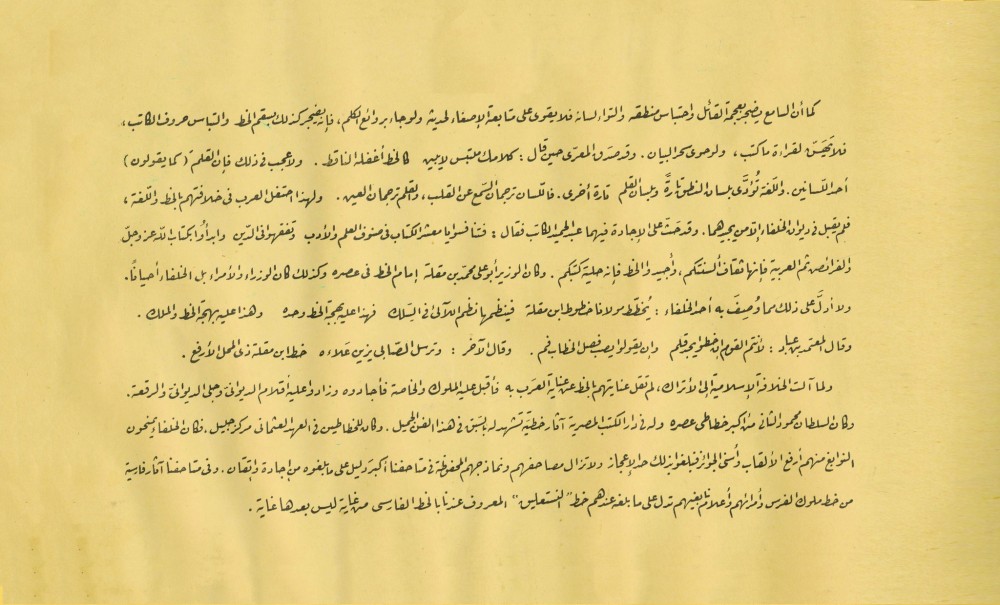 كما أن السامع يضجر بعجمة القائل واحتباس منطقه والتواء لسانه فلا يقوى على متابعة الإصغاء لحديثه ولو جاء بروائع الكلم، فإنه يضجر كذلك بسقم الخط والتباس حروف الكاتب،
فلا تهش لقراءة ما كتب، ولو حوى سحر البيان. وقد صدق المعرى حين قال: كلامك ملتبس لا يبين كالخط أغفله الناقط. ولا عجب فى ذلك فإن القلم (كما يقولون)
أحد اللسانين. واللغة تُؤدَّى بلسان النطق تارةً وبلسان القلم تارة أخرى. فاللسان ترجمان السمع عن القلب، والقلم ترجمان العين. ولهذا احتفل العرب فى خلافتهم بالخط واللغة،
فلم يقبل فى ديوان الخلفاء إلا من يجيدهما. وقد حَثَّ على الإجادة فيهما عبد الحميد الكاتب فقال: فتنافسوا يا معشر الكتاب فى صنوف العلم والأدب وتفقهوا فى الدّين وابدأوا بكتاب الله عز وجلّ
والفرائض ثم العربية فإنها ثقاف ألسنتكم، وأجيدوا الخط فإنه حلية كتبكم. وكان الوزير أبو على محمد بن مقلة إمام الخط فى عصره وكذلك كان الوزراء والأمراء بل الخلفاء أحياناً.
ولا أدلَّ على ذلك مما وُصِفَ به أحد الخلفاء: يُخطّط مولانا خطوط ابن مقلة فينظمها نظم اللآلئ فى السلك فهذا عليه بهجة الخط وحده وهذا عليه بهجة الخط والملك.
وقال المعتمد بن عباد: لأنتم القوم إن خطوا يجد قلم وإن يقولوا يصب فصل الخطاب فم. وقال الآخر: وترسل الصابى يزين علاءه خط ابن مقلة ذى المحل الأرفع.
ولما آلت الخلافة الإسلامية إلى الأتراك، لم تقل عنايتهم بالخط عن عناية العرب به فأقبل عليه الملوك والخاصة فأجادوه وزادوا عليه أقلام الديوانى وجلى الديوانى والرقعة.
وكان السلطان محمود الثانى من أكبر خطاطى عصره وله فى دار الكتب المصرية آثار خطيّة تشهد له بالسبق فى هذا الفن الجميل. وكان للخطاطين فى العهد العثمانى مركز جليل. فكان الخلفاء يمنحون
النوابغ منهم أرفع الألقاب وأسنى الجوائز فبلغوا بذلك حد الإعجاز ولا تزال مصاحفهم ونماذجهم المحفوظة فى متاحفنا أكبر دليل على ما بلغوه من إجادة وإتقان. وفى متاحفنا آثار فارسية
من خط ملوك الفرس وأمرائهم وأعلام نابغيهم تدل على ما بلغه عندهم خط "النستعليق" المعروف عندنا بالخط الفارسى من غاية ليس بعدها غاية.